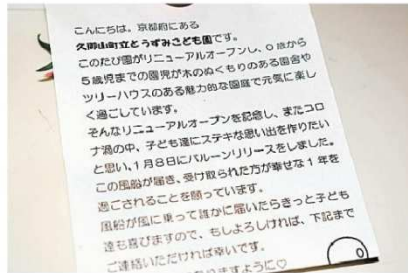 こんにちは。京都府にある
久御山町立とうずみこども園です。
このたび園がリニューアルオープンし、0歳から
5歳児までの園児が木のぬくもりのある園舎や
ツリーハウスのある魅力的な園庭で元気に楽し
く過ごしています。
そんなリニューアルオープンを記念し、またコロ
ナ渦の中、子ども達にステキな思い出を作りたい
と思い、1月8日にバルーンリリースをしました。
この風船が届き、受け取られた方が幸せな1年を
過ごされることを願っています。
風船が風に乗って誰かに届いたらきっと子ども
達も喜びますので、もしよろしければ、下記まで
ご連絡いただければ幸いです。
ますように♡